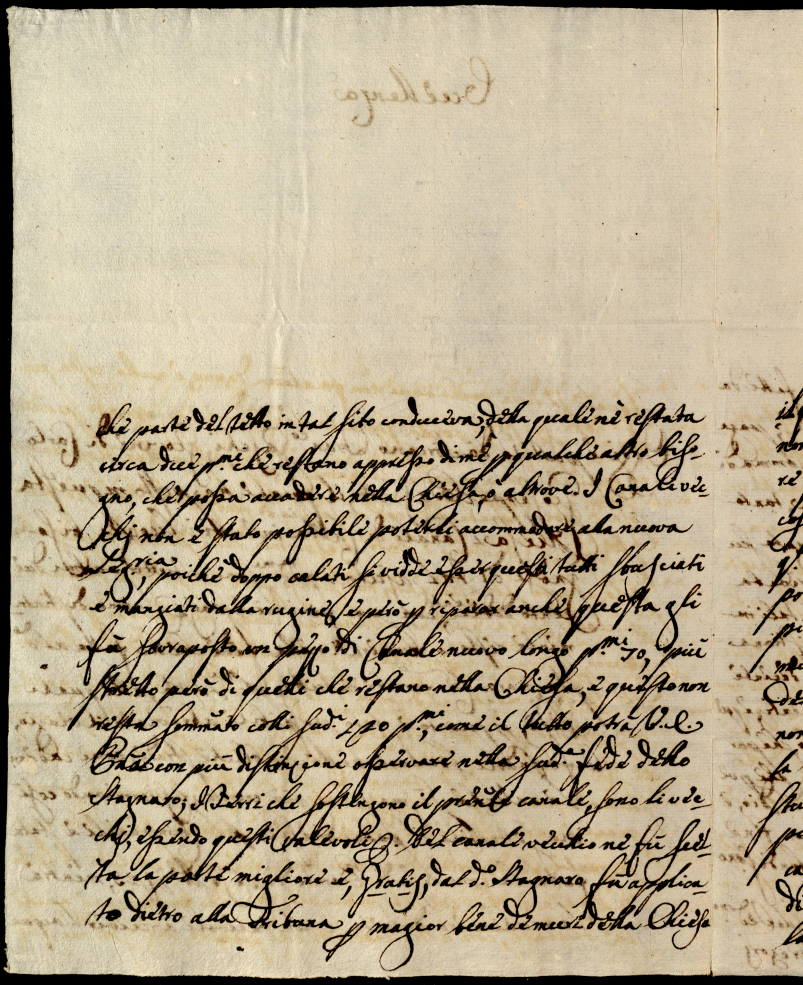 che parte del tetto in tal sito conduceva, della quale n'è restata
circa dieci p.mi che restano appresso di me p qualche altro biso-
gno, che possa accadere nella Chiesa, o altrove. I Canali vec-
chj non è stato possibile poterli accommodare alla nuova
poiche doppo calati si vidde esser questi tutti sbusciati
e mangiati dalla rugine, e però p riparar anche questa gli
fu sovraposto un pezzo di Canale nuovo longo p.mi 70, più
stretto però di quelli che restano nella Chiesa, e questo non
resta sommato colli sud.i 420 p.mi, come il tutto potrà V. E.
con più distinzione osservare nella sud.a fede dello
Stagnaro; I Ferri che sostengono il presente canale, sono li vec-
chj, essendo questi valevoli. Del canale vecchio ne fu scel-
ta la parte migliore e, gratis, dal d.o Stagnaro fu applica-
to dietro alla Tribuna p magior bene de muri della Chiesa